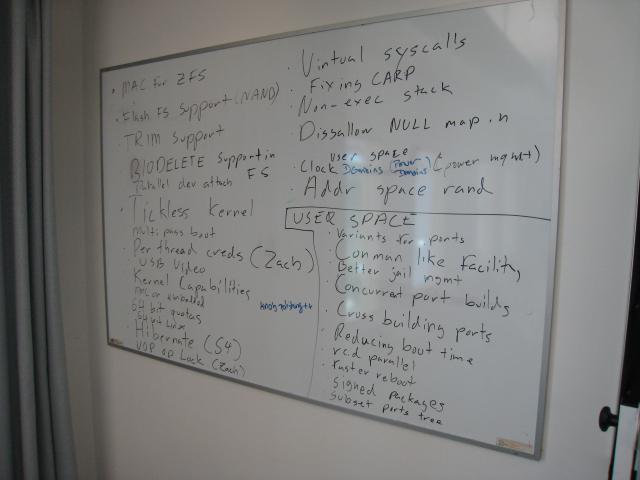 MAC for ZFS
Flash FS Support (NAND)
TRIM Support
BIODELETE Support in FS
Parallel dev attach
Tickless Kernel
multi pass boot
Per thread creds (Zach)
USB Video
Kernel Capabilities
64 bit quotas
64 bit
Hibernate (S4)
VOP op Lock (Zach)
Virtual syscalls
Fixing CARP
Non-exec stack
Dissallow NULL map in user space
Clock Domains (Power Domains) (power mgmt)
Addr space rand
USER SPACE
Variants for ports
Conman like Facility
Better jail mgmt
Concurrent port builds
Cross building ports
Reducing boot time
rc.d parallel
Faster reboot
Signed packages
Subset ports tree